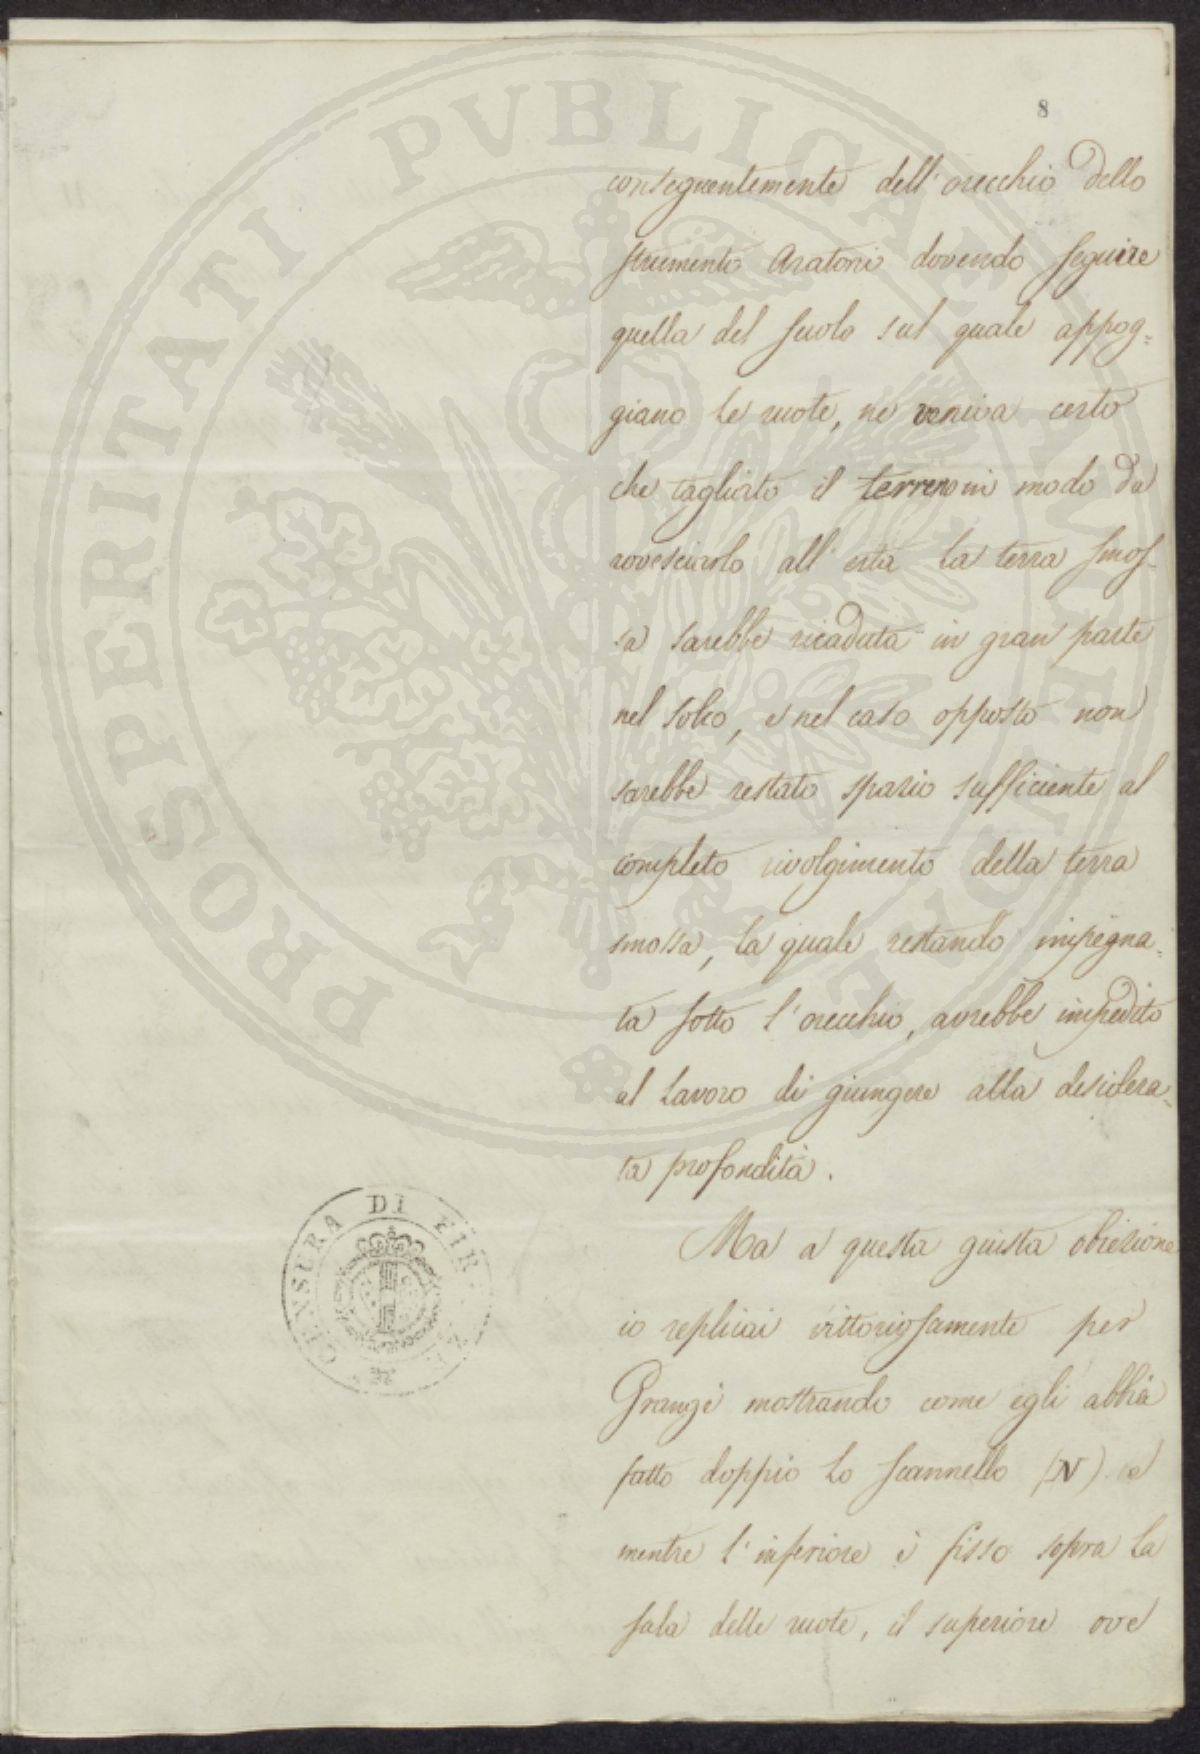 8
conseguentemente dell'orecchio dello
strumento Aratorio dovendo seguire
quella del suolo sul quale appog=
giano le ruote, ne veniva certo
che tagliato il terreno in modo da
rovesciarlo all'erta la terra smos-
sa sarebbe ricaduta in gran parte
nel solco, e nel caso opposto non
sarebbe restato spazio sufficiente al
completo rivolgimento della terra
smossa, la quale restando impegna=
ta sotto l'orecchio, avrebbe impedito
al lavoro di giungere alla desidera-
ta profondità.
Ma a questa giusta obiezione
io replicai vittoriosamente per
Grangé mostrando come egli abbia
fatto doppio lo scannello (N) e
mentre l'inferiore è fisso sopra la
sala delle ruote, il superiore ove
CENSURA DI FIRENZE
PROSPERITATI PVBLICAE AVGENDAE